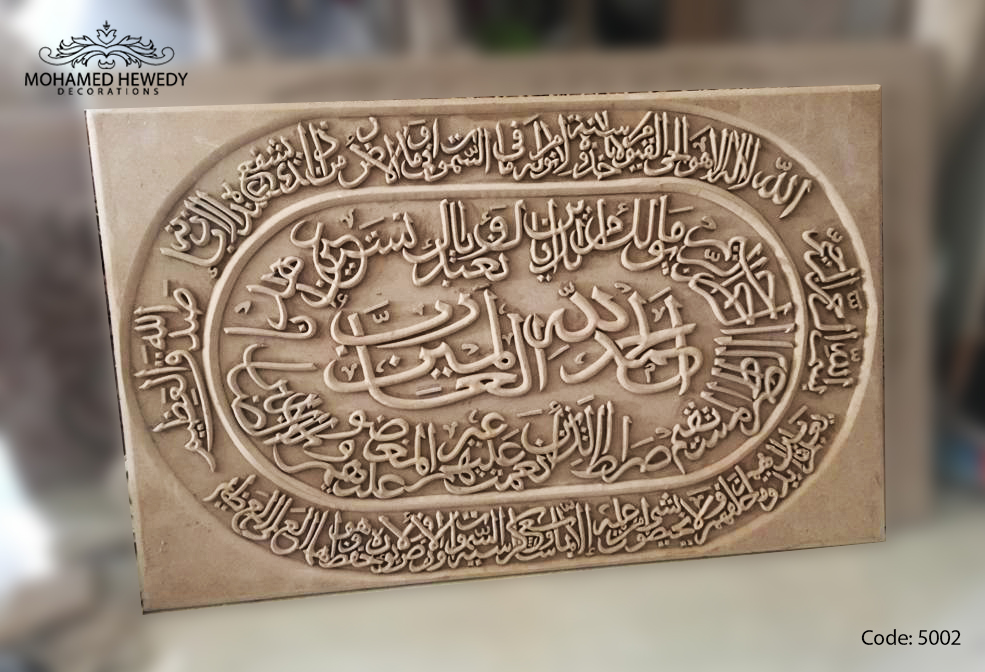 MOHAMED HEWEDY
DECORATIONS
بسم الله الرحمن الرحيم
الله لا إله إلا هو الحي القيوم لا تأخذه سنة ولا نوم له ما في السموات وما في الأرض من ذا الذي يشفع عنده إلا بإذنه
يعلم ما بين أيديهم وما خلفهم ولا يحيطون بشيء من علمه إلا بما شاء وسع كرسيه السموات والأرض ولا يؤوده حفظهما وهو العلي العظيم
صدق الله العظيم
الحمد لله رب العالمين
الرحمن الرحيم مالك يوم الدين إياك نعبد وإياك نستعين اهدنا
الصراط المستقيم صراط الذين أنعمت عليهم غير المغضوب عليهم ولا الضالين
Code: 5002